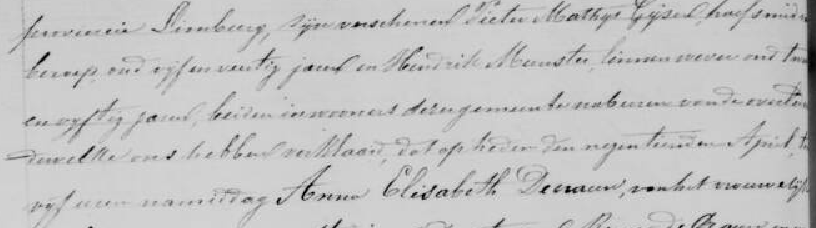 provincie Limburg, zijn verschenen Pieter Mathys Gijsen, hoefsmid
beroep, oud vyf en veertig jaren en Hendrik Munster, linnenwever oud
en vyftig jaren, beiden inwooners dezer gemeente naburen van de
dewelke ons hebben verklaard, dat op heden den negentienden April,
vyf uren namiddag Anna Elisabeth Decraun, van het vrouwelijk